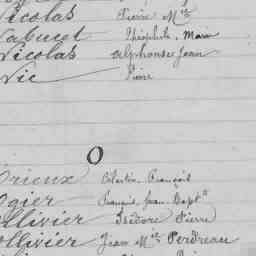 Nicolas Pierre Mie
Nabucet Théophile Marie
Nicolas Alphonse Jean
Nic Pierre
O
Orieux Célestin François
Ogier François Jean Bapte
Ollivier Isidore Pierre
Ollivier Jean Mie Perdreau